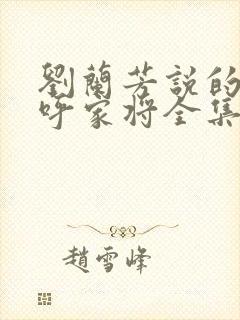 劉蘭芳説的
呼家将全集
趙雪峰